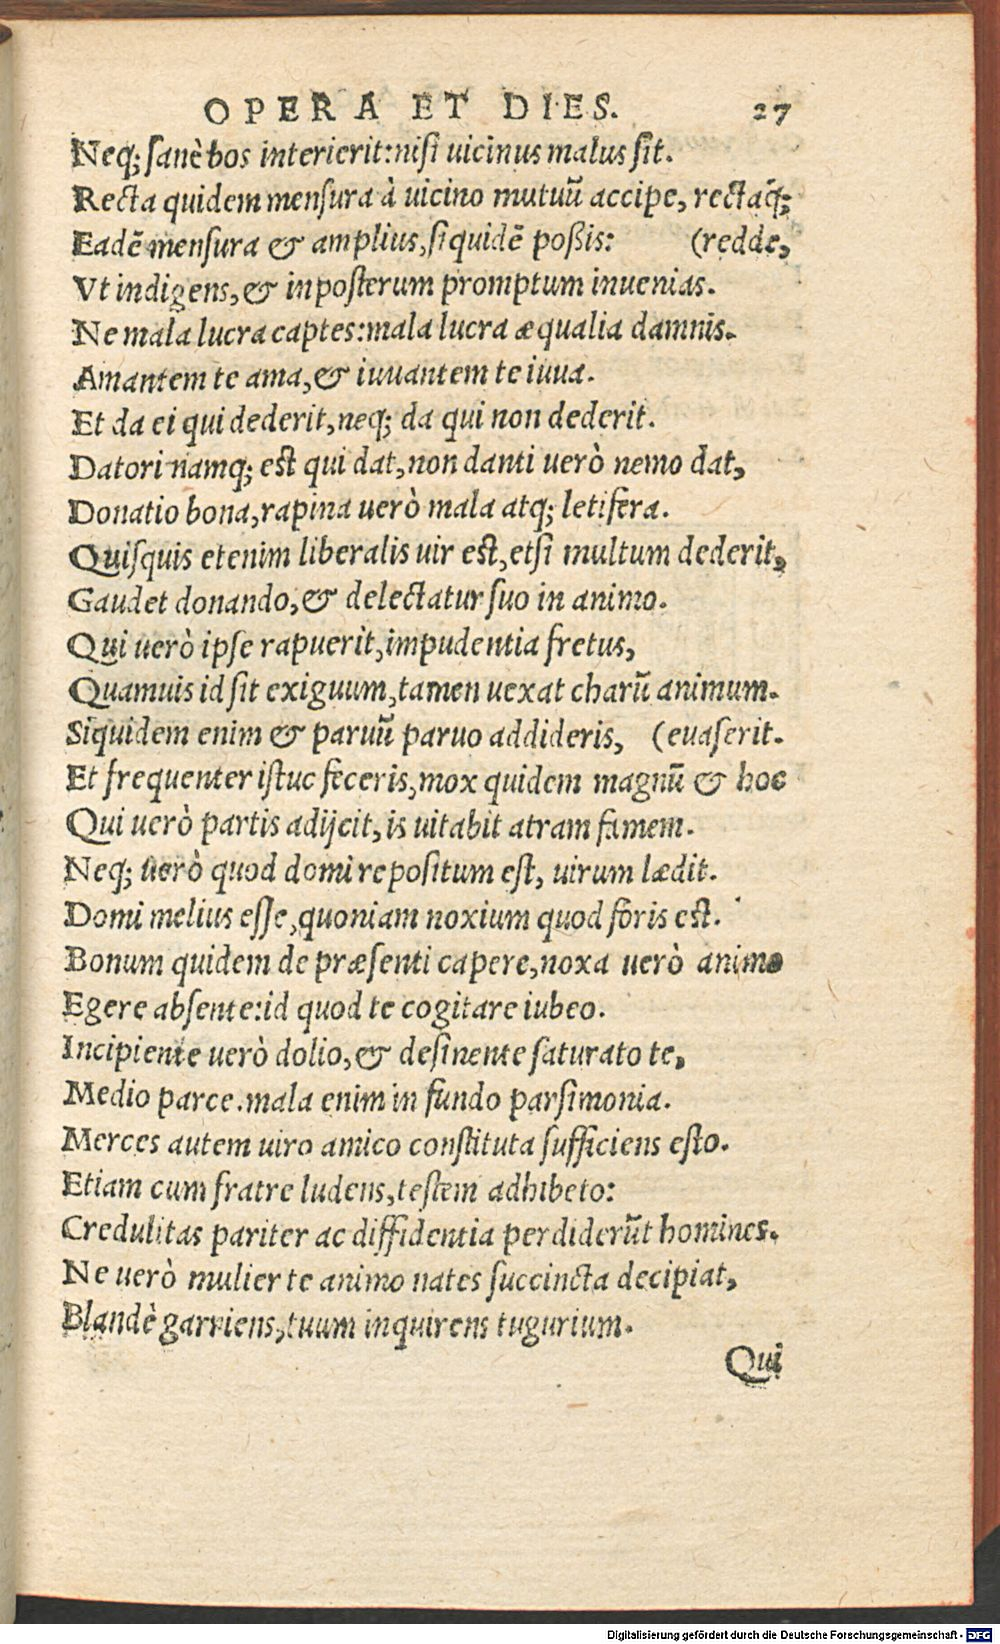 OPERA ET DIES. 27
Neq; sanè bos interierit: nisi uicinus malus sit.
Recta quidem mensura à uicino mutuũ accipe, rectaq́;
Eadẽ mensura & amplius, si quidẽ poßis: (redde,
Vt indigens, & in posterum promptum inuenias.
Ne mala lucra captes: mala lucra æqualia damnis.
Amantem te ama, & iuuantem te iuua.
Et da ei qui dederit, neq; da qui non dederit.
Datori namq; est qui dat, non danti uerò nemo dat,
Donatio bona, rapina uerò mala atq; letifera.
Quisquis etenim liberalis uir est, etsi multum dederit,
Gaudet donando, & delectatur suo in animo.
Qui uerò ipse rapuerit, impudentia fretus,
Quamuis id sit exiguum, tamen uexat charũ animum.
Siquidem enim & paruũ paruo addideris, (euaserit.
Et frequenter istuc feceris, mox quidem magnũ & hoc
Qui uerò partis adijcit, is uitabit atram famem.
Neq; uerò quod domi repositum est, uirum lædit.
Domi melius esse, quoniam noxium quod foris est.
Bonum quidem de præsenti capere, noxa uerò animo
Egere absente: id quod te cogitare iubeo.
Incipiente uerò dolio, & desinente saturato te,
Medio parce. mala enim in fundo parsimonia.
Merces autem uiro amico constituta sufficiens esto.
Etiam cum fratre ludens, testem adhibeto:
Credulitas pariter ac diffidentia perdiderũt homines.
Ne uerò mulier te animo nates succincta decipiat,
Blandè garriens, tuum inquirens tugurium.
Qui
Digitalisierung gefördert durch die Deutsche Forschungsgemeinschaft - DFG